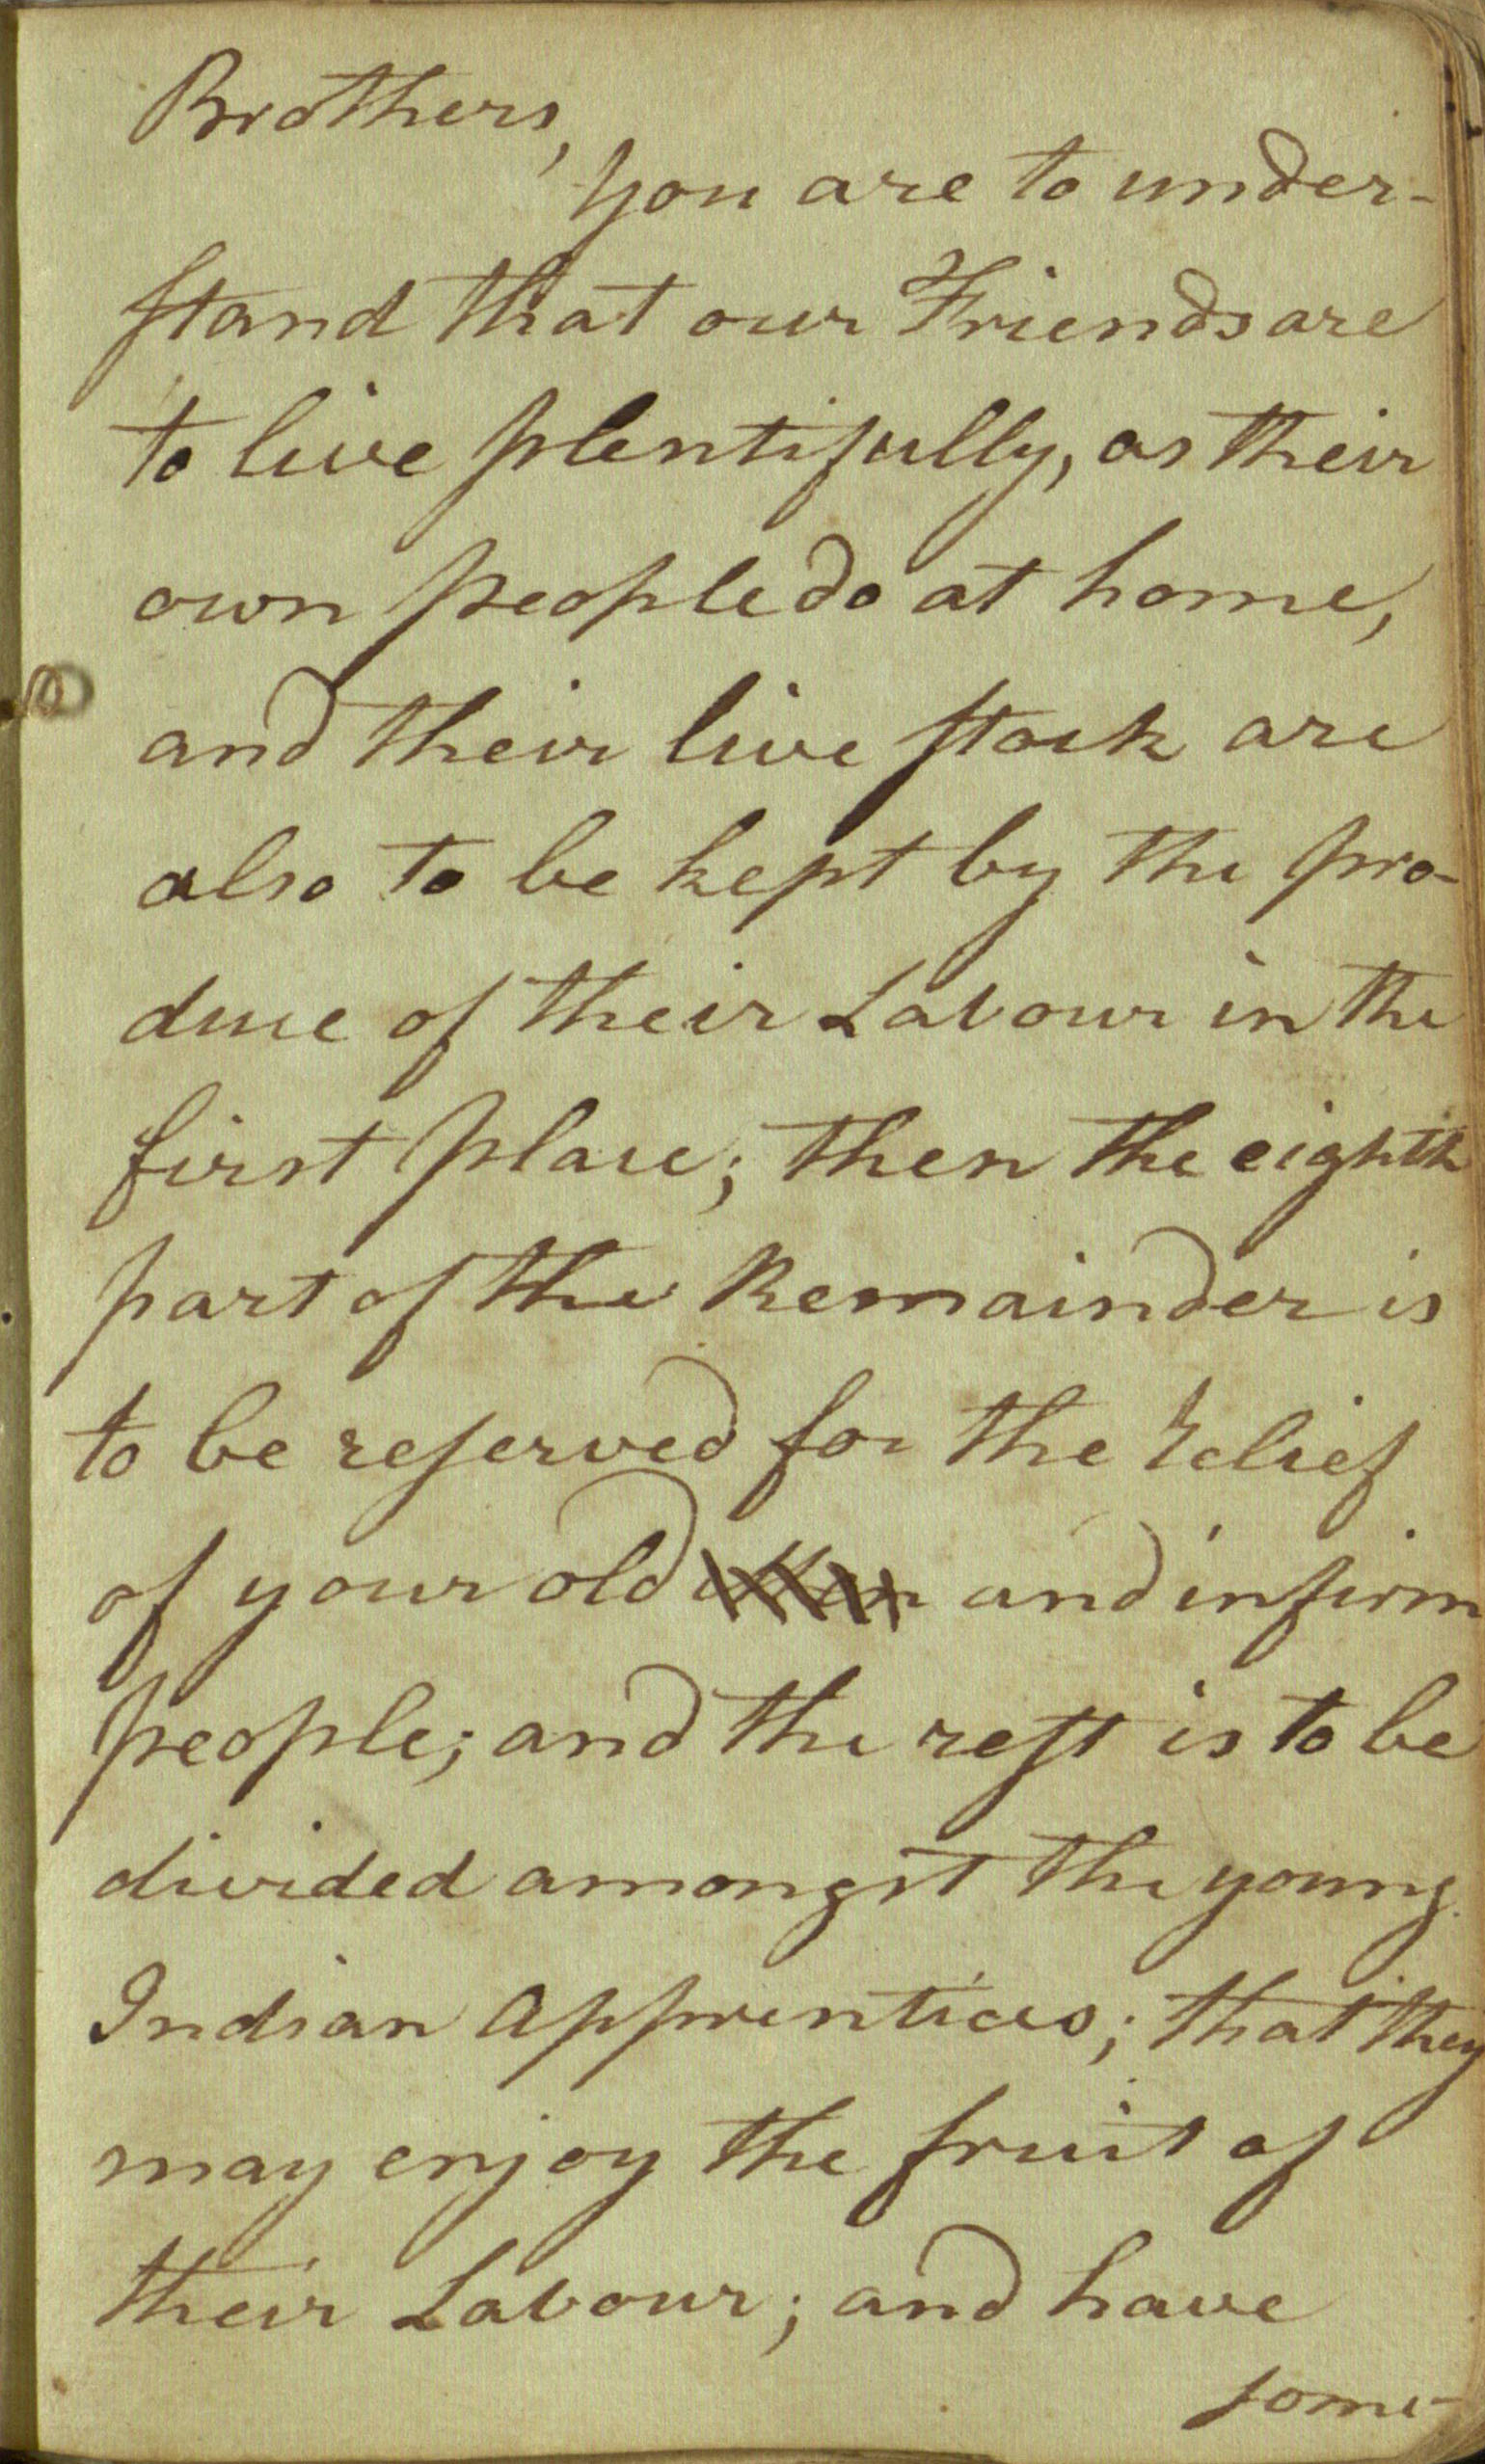 Brothers,
you are to under-
stand that our Friends are
to live plentifully, as their
own people do at home,
and their live stock are
also to be kept by the pro-
duce of their Labour in the
first place; then the eighth
part of the Remainder is
to be reserved for the Relief
of your old and infirm
people; and the rest is to be
divided amongst the young
Indian Apprentices; that they
may enjoy the fruit of
their Labour; and have
some-